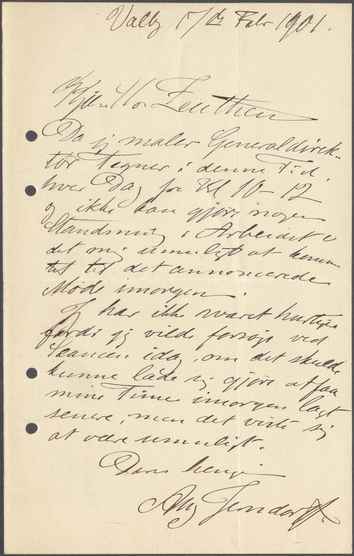 Valby 17de Febr 1901.
Kjære Hr. Zeuthen
Da jeg maler Generaldirek-
tør Tegner i denne Tid
hver Dag fra Kl 10-12
og ikke kan gjøre nogen
Standsning i Arbeidet er
det mig umuligt at komme
til det annoncerede
Møde imorgen.
Jeg har ikke svaret hurtigere
fordi jeg vilde forsøge ved
Seancen idag, om det skulde
kunne lade sig gjøre at faa
mine Timer imorgen lagt
senere, men det viste sig
at være umuligt.
Deres hengivne
Aug Jerndorff.